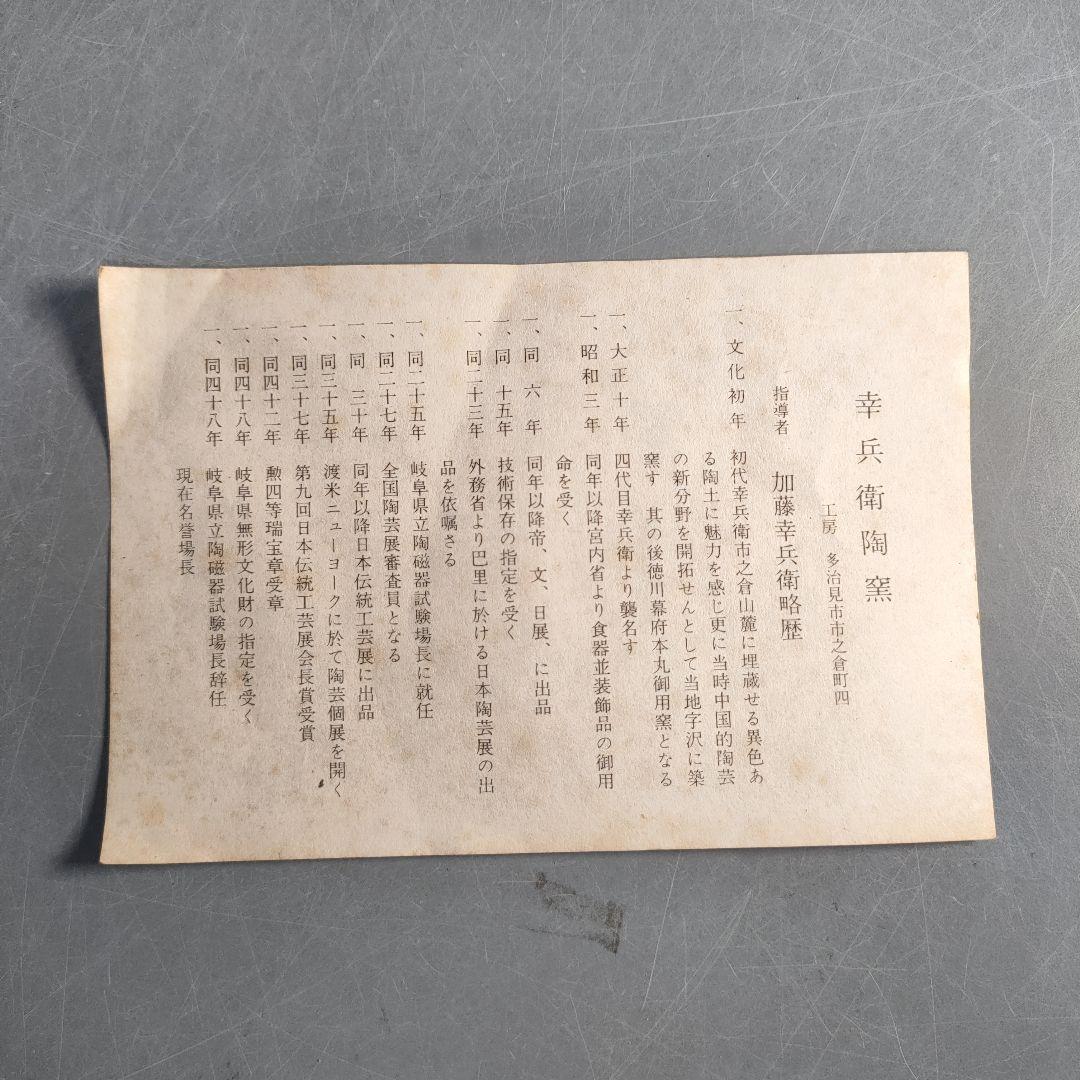 幸兵衛陶窯
工房 多治見市市之倉町四
指導者 加藤幸兵衛略歴
一、文化初年 初代幸兵衛市之倉山麓に埋蔵せる異色あ
る陶土に魅力を感じ更に当時中国的陶芸
の新分野を開拓せんとして当地字沢に築
窯す 其の後徳川幕府本丸御用窯となる
一、大正十年 四代目幸兵衛より襲名す
一、昭和三年 同年以降宮内省より食器並装飾品の御用
命を受く
一、同六年 同年以降帝、文、日展、に出品
一、同十五年 技術保存の指定を受く
一、同二十三年 外務省より巴里に於ける日本陶芸展の出
品を依嘱さる
一、同二十五年 岐阜県立陶磁器試験場長に就任
一、同二十七年 全国陶芸展審査員となる
一、同三十年 同年以降日本伝統工芸展に出品
一、同三十五年 渡米ニューヨークに於て陶芸個展を開く
一、同三十七年 第九回日本伝統工芸展会長賞受賞
一、同四十二年 勲四等瑞宝章受章
一、同四十八年 岐阜県無形文化財の指定を受く
一、同四十八年 岐阜県立陶磁器試験場長辞任
現在名誉場長